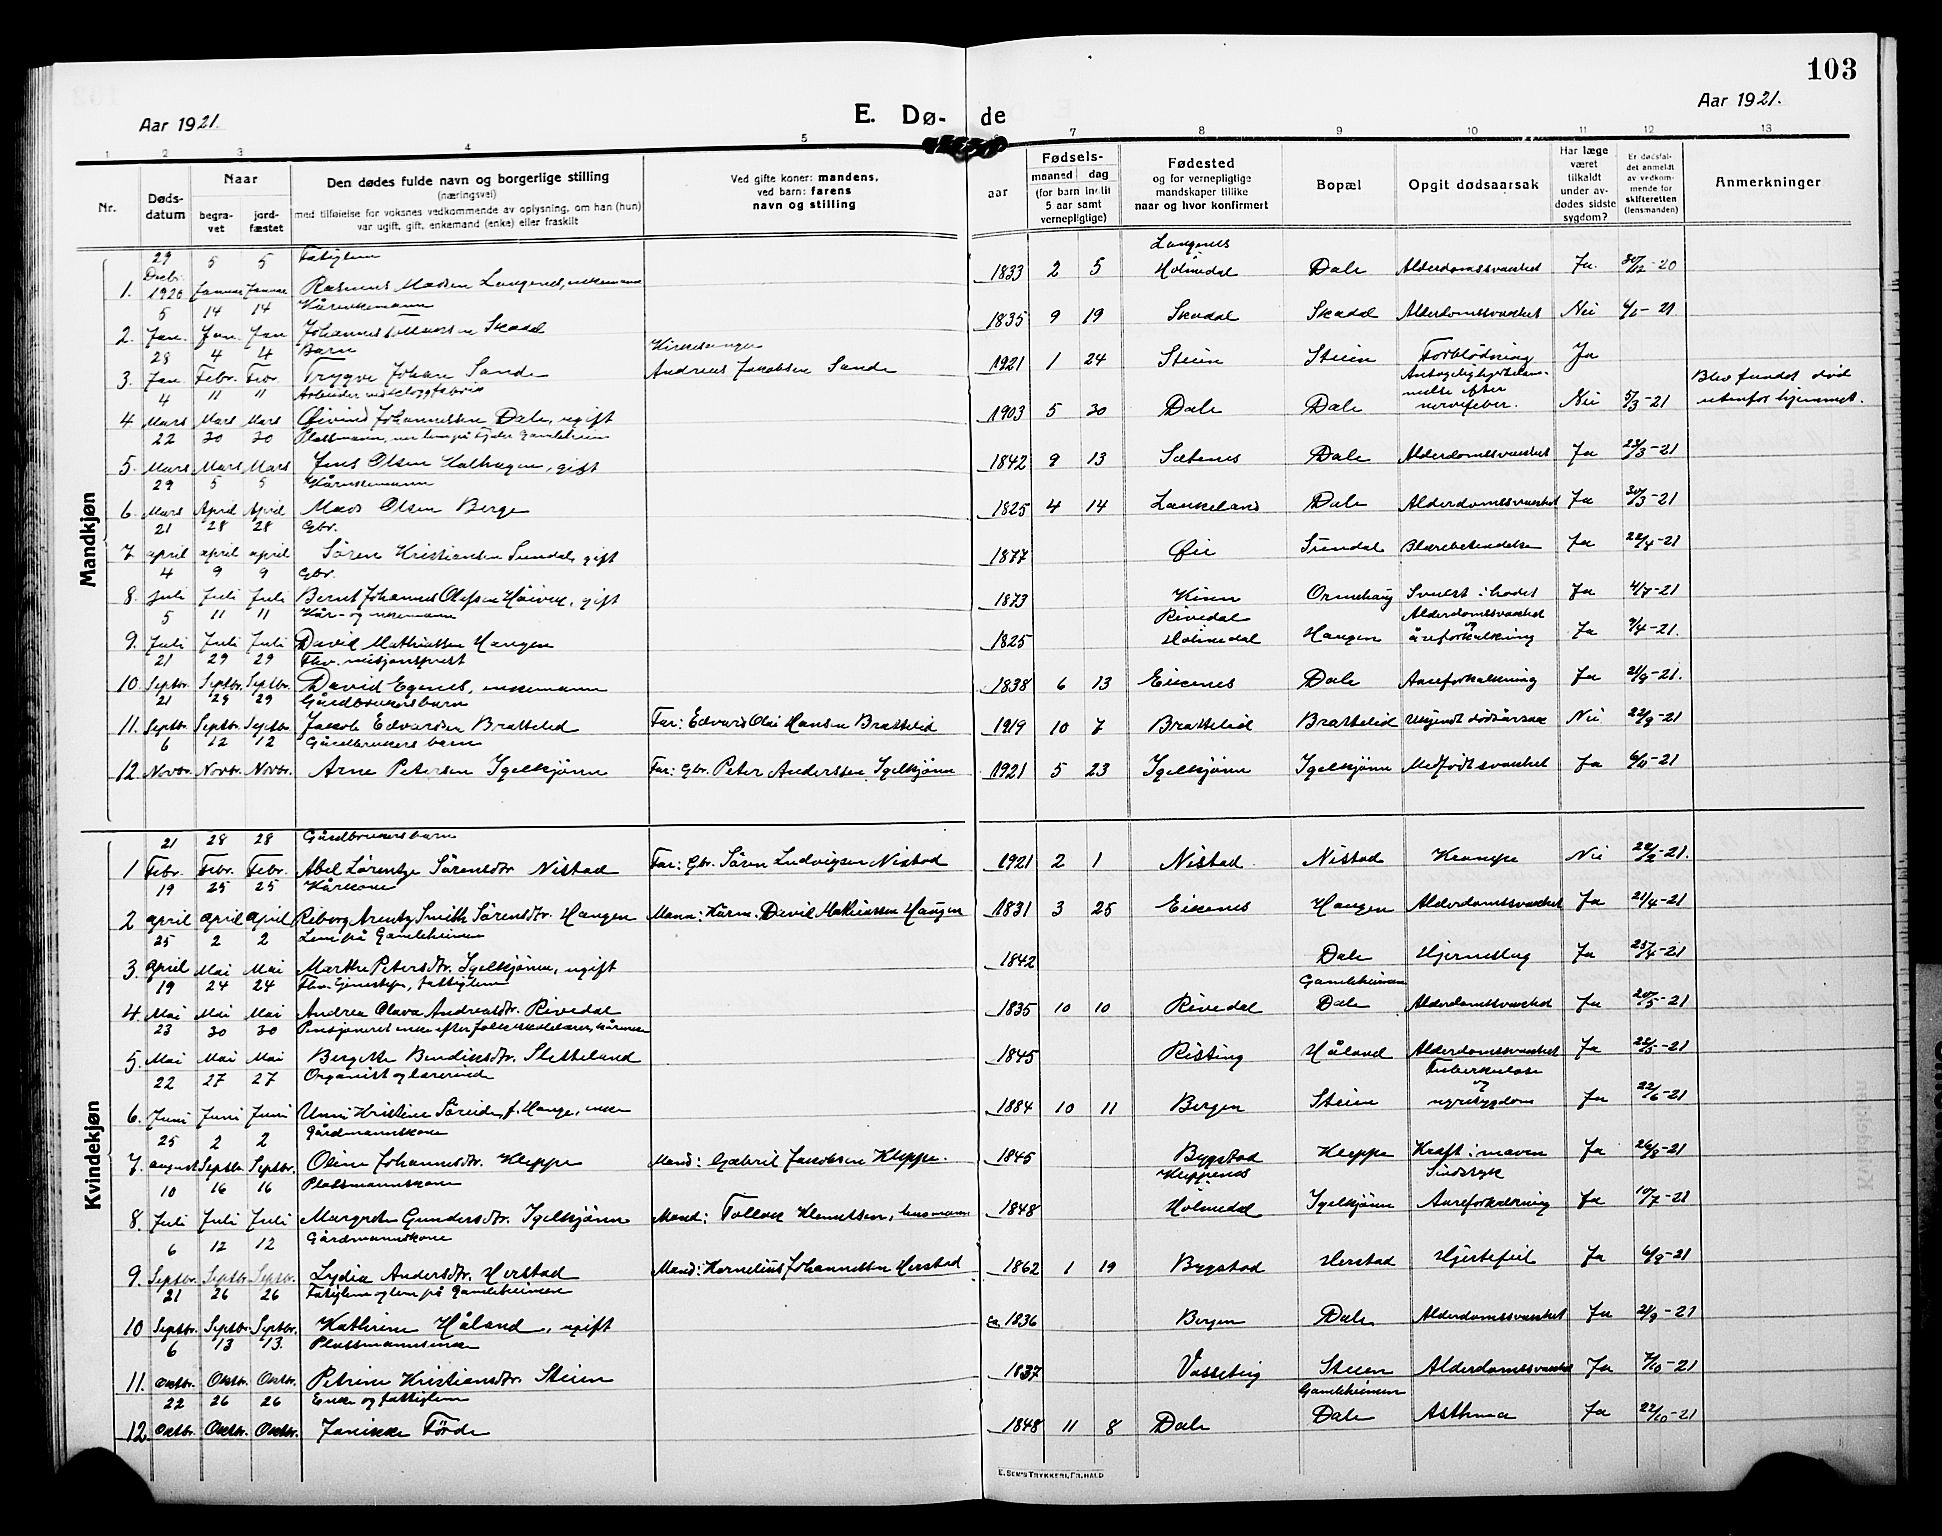 103
Aar 1921.
E. Dø- de
Aar 1921.
1 2 3 4 5 7 8 9 10 11 12 13
Nr.
Døds-datum
Naar
begra-vet
jord-fæstet
Den dødes fulde navn og borgerlige stilling
(næringsvei)
med tilføielse for voksnes vedkommende av oplysning, om han (hun)
var ugift, gift, enkemand (enke) eller fraskilt
Ved gifte koner: mandens,
ved barn: farens
navn og stilling
Fødsels-
aar
maaned dag
(for barn indtil
5 aar samt
vernepligtige)
Fødested
og for vernepligtige
mandskaper tillike
naar og hvor konfirmert
Bopæl
Opgit dødsaarsak
Har læge
været
tilkaldt
under av-
dødes sidste
sygdom?
Er dødsfal-
det anmeldt
av vedkom-
mende for
skifteretten
(lensmanden)
Anmerkninger
Mandkjøn
1. 29 Decbr. 1920 5 Januar 5 Januar Fattiglem Rasmus Madsen Langenes, enkemann 1833 2 5 Langenes Holmedal Dale Alderdomssvaaket Ja. 30/12-20
2. 5 Jan. 14 Jan 14 Jan Kårenkemann Johannes Skadal 1835 9 19 Skadal Skadal Alderdomssvaaket Nei 6/1-21
3. 28 Jan 4 Febr. 4 Febr Barn Trygve Johan Sande Kirkesanger Andreas Jakobsen Sande 1921 1 24 Steien Steien Forblødning Ja
4 4 Mars 11 Mars 11 Mars Arbeider Øivind Johannessen Dale, ugift 1903 5 30 Dale Dale efter nervefeber. Nei 5/3-21 Blev fundet død utenfor hjemmet.
5. 22 Mars 30 Mars 30 Mars Plassmann, Gamleheim Jens Olsen Kalhagen, gift 1842 9 13 Sætenes Dale Alderdomssvaaket Ja 23/3-21
6. 29 Mars 5 April 5 April Kårenkemann Mads Olsen Berge 1825 4 14 Laukeland Dale Alderdomssvaaket Ja 30/3-21
7 21 april 28 april 28 april Gbr. Søren Kristiansen Sundal, gift 1877 Øie Sundal Blærebetendelse Ja 22/4-21
8. 4 Juli 9 Juli 9 Juli Gbr. Bernt Johannes Olefsen gift 1873 Ormehaug Svulst i hodet Ja 4/7-21
9. 5 Juli 11 Juli 11 Juli Kår- og enkemann David Mathiassen Haugen 1825 Rivedal Holmedal Haugen Alderdomssvaaket og åreforkalkning Ja
10 21 Septbr 29 Septbr 29 Septbr. Fhv. misjonsprest David Egenes, enkemann 1838 6 13 Eikenes Dale Aareforkalkning Ja 21/9-21.
11. 21 Septbr 29 Septbr 29 Septbr Gårdbrukersbarn Jakob Edvardsen Brattelid Far: Edvard Olai Hansen Brattelid 1919 10 7 Brattelid Brattelid Ukjendt dødsårsak Nei 22/9-21
12. 6 Novbr. 12 Novbr. 12 Novbr. Gårdbrukers barn Arne Petersen Igelkjønn Far: Gbr. Peter Anderssen Igelkjønn 1921 5 23 Igelkjønn Igelkjønn Medfødt svaaket Ja 6/11-21
Kvindekjøn
1 21 Febr. 28 Febr. 28 Febr. Gårdbrukersbarn Abel Lørentze Sørensdtr Nistad Far: Gbr. Søren Ludvigsen Nistad 1921 2 1 Nistad Nistad Krampe Nei 22/2-21.
2 19 april 25 april 25 april Kårkone Smith Sørensdtr. Haugen Mann: Kårm. David Mathiassen Haugen 1831 3 25 Eikenes Haugen Alderdomssvaaket Ja 21/4-21
3. 25 april 2 Mai 2 Mai Lem på Gamleheimen Marthe Petersdtr. Igelkjønn, ugift 1842 Dale Hjerneslag Ja 25/4-21
4. 19 Mai 24 Mai 24 Mai Fhv. fattiglem Andrea Olava Andreasdtr. Rivedal 1835 10 10 Rivedal Gamleheimen Dale Alderdomssvaaket Ja 20/5-21
5. 23 Mai 30 Mai 30 Mai Pensjoneret enke efter folkeskolelærer, Bergitte Bendiksdtr. Sletteland 1845 Risting Håland Alderdomssvaaket Ja
6. 22 Juni 27 Juni 27 Juni Organist og lærerinde Unni Kristine Søreide, f. Hauge, enke 1884 10 11 Bergen Steien Tuberkulose og nyresygdom Ja 22/6-21
7. 25 august 2 Septbr 2 Septbr. Gårdmannskone Oline Johannesdtr. Kleppe Mand: Gabriel Jakobsen Kleppe. 1845 Bygstad Kleppe Kræft i maven Ja 26/8-21
8. 10 Juli 16 Juli 16 Juli Plassmannskone Margrete Gundersdtr. Igelkjønn Mand: Tollak Klemetsen, husmann 1848 Kleppenes Holmedal Igelkjønn Sindssyk Aareforkalkning Ja 10/7-21
9. 6 Septbr. 12 Septbr 12 Septbr. Gårdmannskone Lydia Andersdtr. Herstad Mand: Kornelius Johannessen Herstad 1862 1 19 Bygstad Herstad Hjertefeil Ja 6/9-21
10 21 Septbr. 26 Septbr 26 Septbr. Fattiglem og lem på Gamleheimen Kathrine Håland, ugift ca. 1836 Bergen Dale Alderdomssvaaket Ja 21/9-21
11. 6 Oktbr. 13 Oktbr. 13. Oktbr. Plassmannsenke Petrine Kristiansdtr. Steien 1837 Steien Alderdomssvaaket Ja 7/10-21
12. 22 Oktbr. 26 Oktbr. 26 Oktbr. Enke og fattiglem Janikke Førde 1848 11 8 Dale Gamleheimen Dale Asthma Ja 22/10-21
E. SEM'S TRYKKERI, FR.HALD